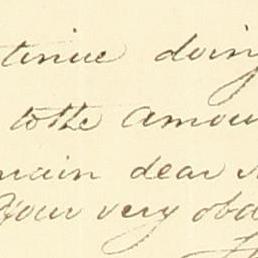 tinue doing
to the amou
main dear
Your very obd